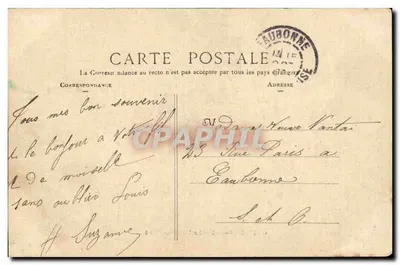 EAUBONNE
CARTE POSTALE
La Correspondance au recto n'est pas acceptée par tous les pays étrangers
CORRESPONDANCE
ADRESSE
Tous mes bon souvenir
et le bonjour a Votre
de moiselle
sans oublier Louis
Suzanne
CPAPHIL
Veuve
23 Rue Paris a
Eaubonne
S. et O.